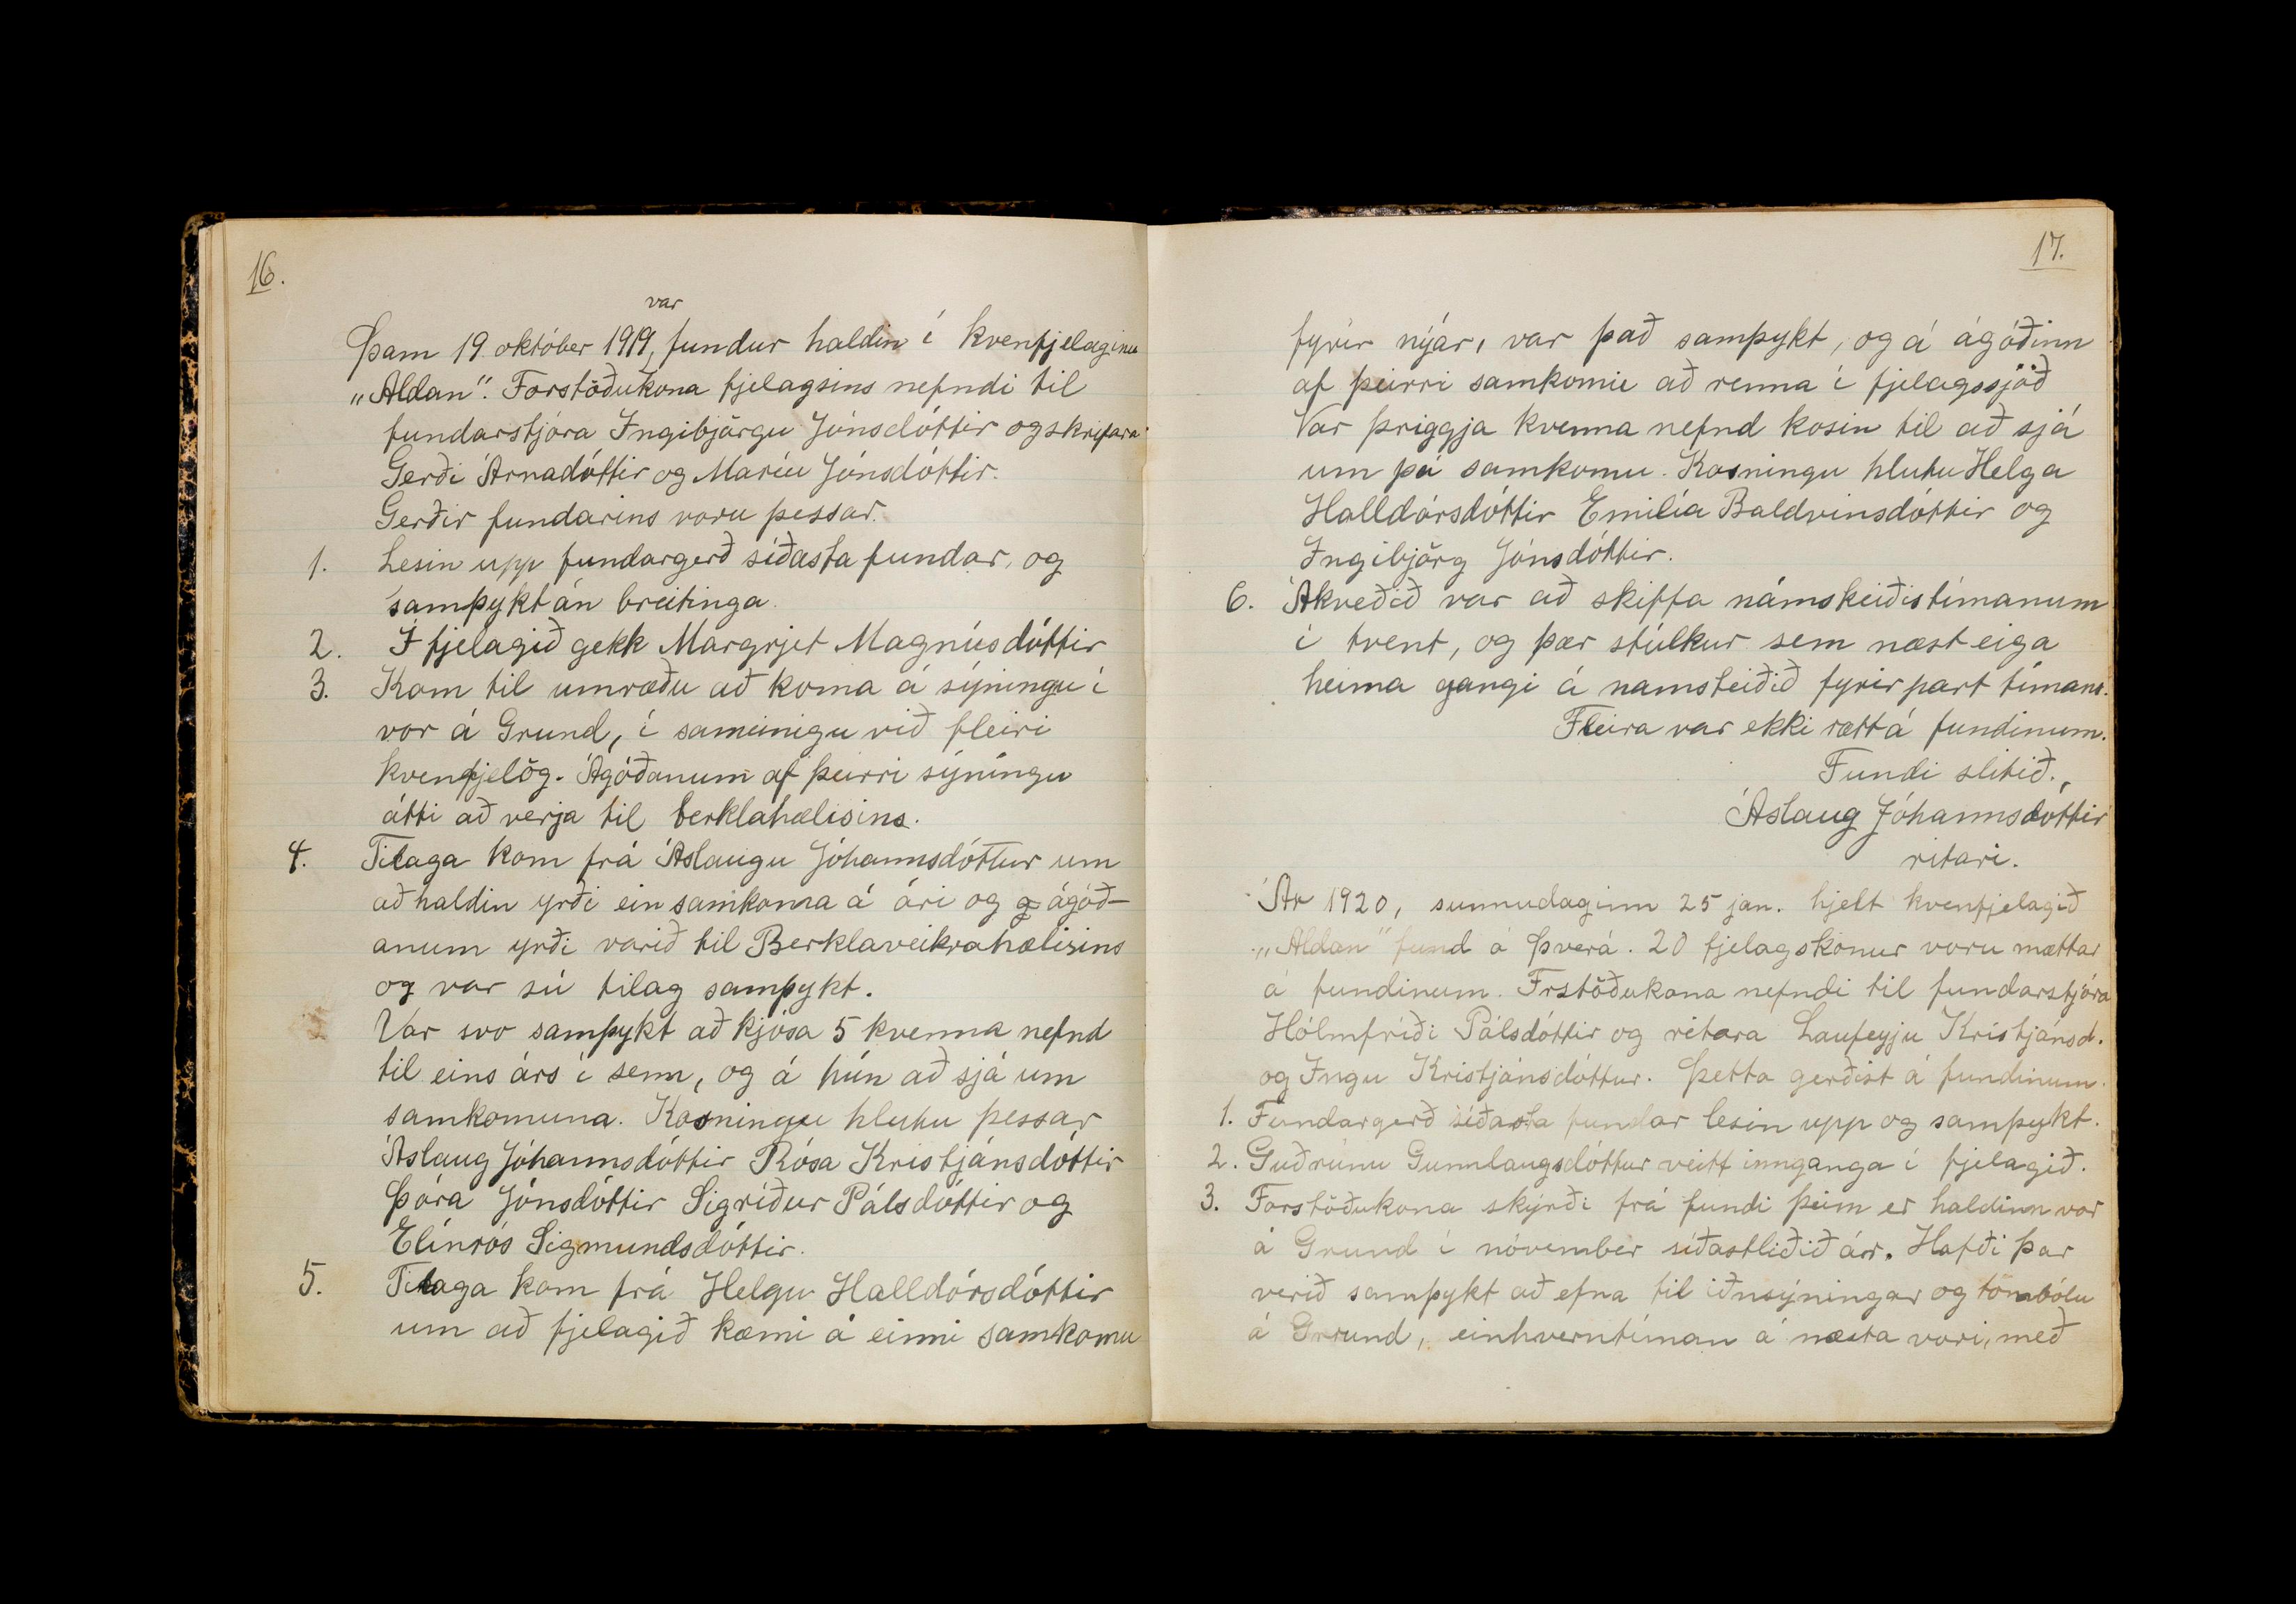 16.
var
Þam 19. október 1919, fundur haldin í kvenfjelaginu
„Aldan". Forstöðukona fjelagsins nefndi til
fundarstjóra Ingibjörgu Jónsdóttir og skrifara
Gerði Árnadóttir og Maríu Jónsdóttir.
Gerðir fundarins voru þessar.
1. Lesin upp fundargerð síðasta fundar, og
samþykt án breitinga.
2. Í fjelagið gekk Margrjet Magnúsdóttir
3. Kom til umræðu að koma á sýningu í
vor á Grund, í sameinigu við fleiri
kvenfjelög. Ágóðanum af þeirri sýningu
átti að verja til berklahælisins.
4. Tilaga kom frá Áslaugu Jóhannsdóttur um
að haldin yrði ein samkoma á ári og ágóð-
anum yrði varið til Berklaveikrahælisins
og var sú tilag samþykt.
Var svo samþykt að kjósa 5 kvenna nefnd
til eins árs í senn, og á hún að sjá um
samkomuna. Kosningu hlutu þessar
Áslaug Jóhannsdóttir Rósa Kristjánsdóttir
Þóra Jónsdóttir Sigríður Pálsdóttir og
Elínrós Sigmundsdóttir.
5. Tilaga kom frá Helgu Halldórsdóttir
um að fjelagið kæmi á einni samkomu
17.
fyrir nýár, var það samþykt, og á ágóðinn
af þeirri samkomu að renna í fjelagssjóð
Var þriggja kvenna nefnd kosin til að sjá
um þá samkomu. Kosningu hlutu Helga
Halldórsdóttir Emilía Baldvinsdóttir og
Ingibjörg Jónsdóttir.
6. Ákveðið var að skifta námskeiðistímanum
í tvent, og þær stúlkur sem næst eiga
heima gangi á namsteiðið fyrir part tímans.
Fleira var ekki rætt á fundinum.
Fundi slitið.
Áslaug Jóhannsdóttir
ritari.
Ár 1920, sunnudaginn 25 jan. hjelt kvenfjelagið
„Aldan" fund á Þverá. 20 fjelagskonur voru mættar
á fundinum. Frstöðukona nefndi til fundarstjóra
Hólmfríði Pálsdóttir og ritara Laufeyju Kristjánsd.
og Ingu Kristjánsdóttur. Þetta gerðist á fundinum.
1. Fundargerð síðasta fundar lesin upp og samþykt.
2. Guðrúnu Gunnlaugsdóttur veitt innganga í fjelagið.
3. Forstöðukona skýrði frá fundi þeim er haldinn var
á Grund í nóvember síðastliðið ár. Hafði þar
verið samþykt að efna til iðnsýningar og tombólu
á Grund, einhverntíman á næsta vori, með